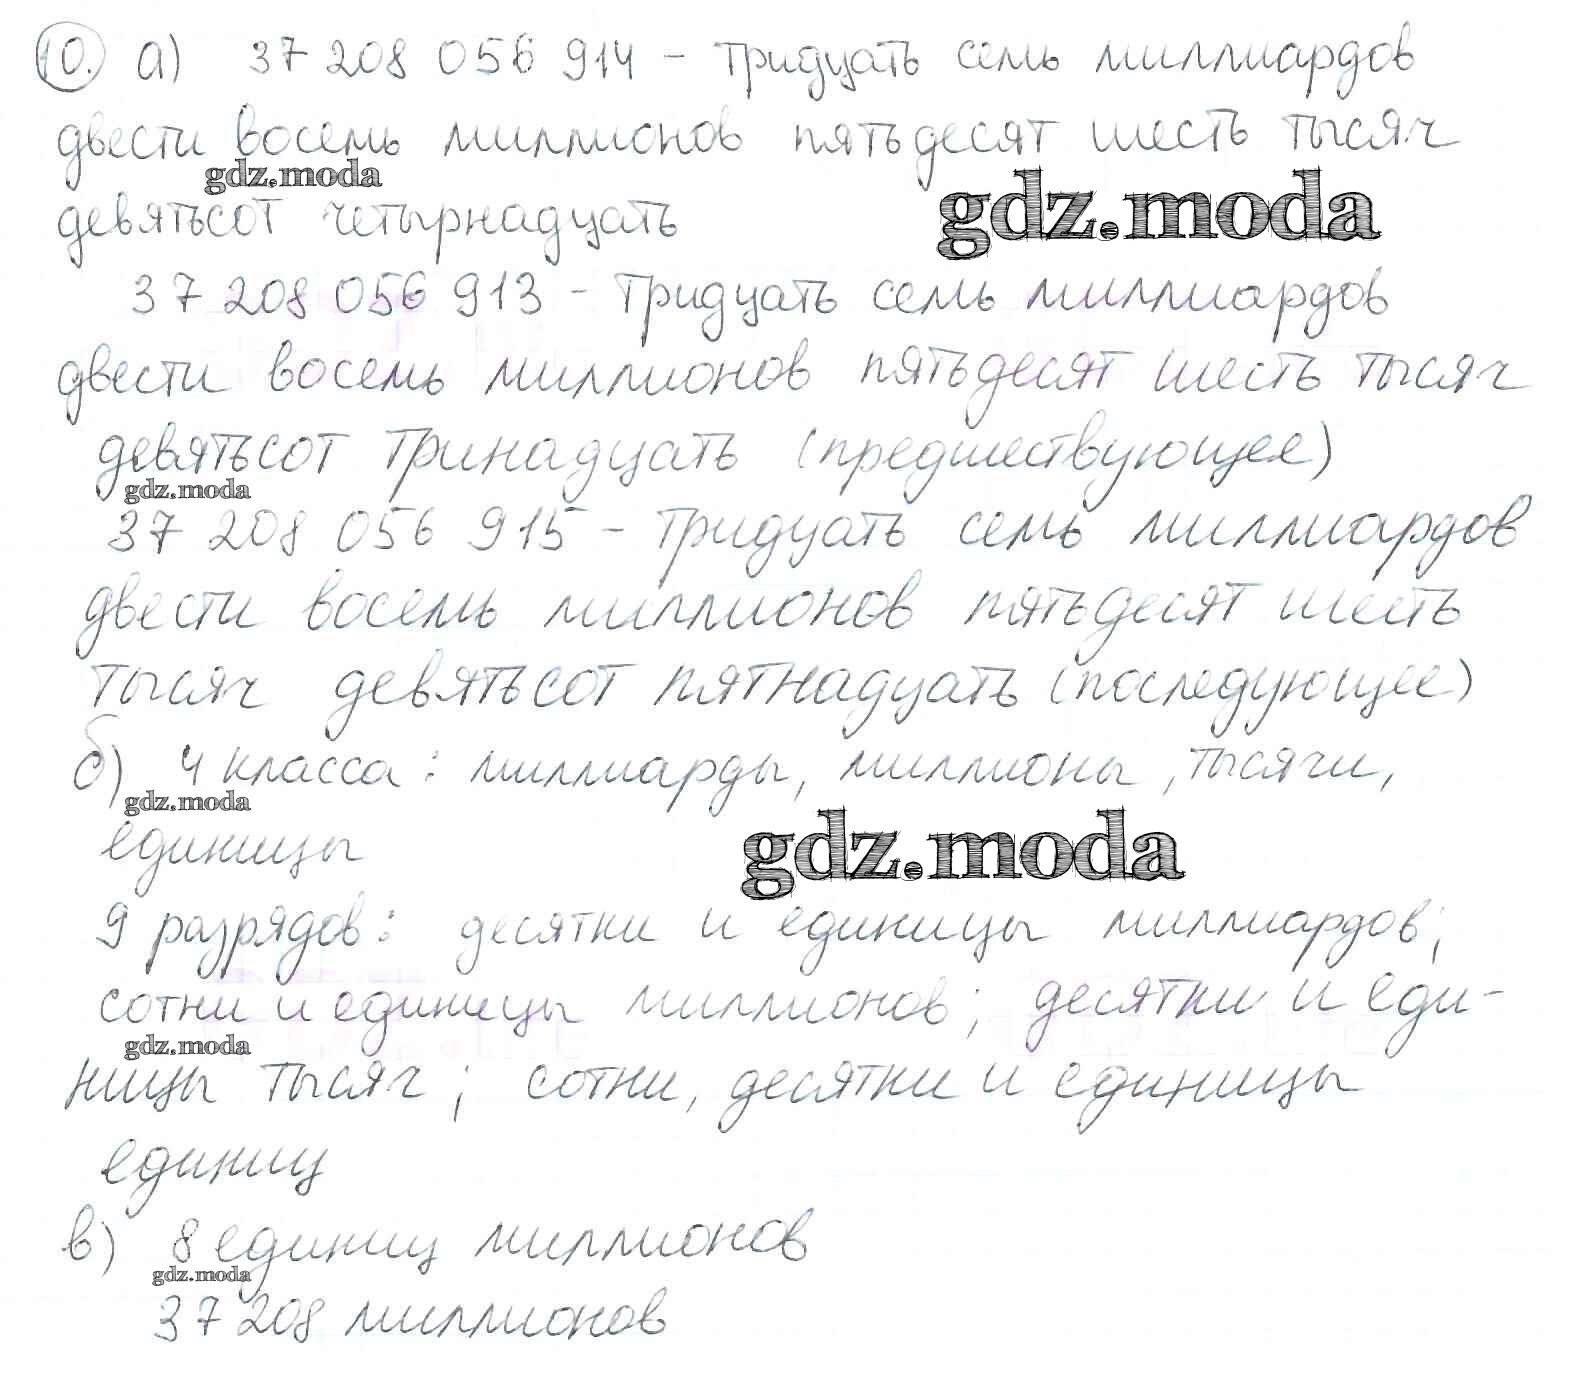 10. а) 37 208 056 914 – тридцать семь миллиардов
двести восемь миллионов пятьдесят шесть тысяч
gdz.moda
gdz.moda
девятьсот четырнадцать
37 208 056 913 – тридцать семь миллиардов
двести восемь миллионов пятьдесят шесть тысяч
девятьсот тринадцать (предшествующее)
gdz.moda
37 208 056 915 – тридцать семь миллиардов
двести восемь миллионов пятьдесят шесть
тысяч девятьсот пятнадцать (последующее)
б) 4 класса: миллиарды, миллионы, тысячи,
gdz.moda
единицы
gdz.moda
9 разрядов: десятки и единицы миллиардов;
сотни и единицы миллионов; десятки и еди-
gdz.moda
ницы тысяч; сотни, десятки и единицы
единиц
в) 8 единиц миллионов
gdz.moda
37 208 миллионов